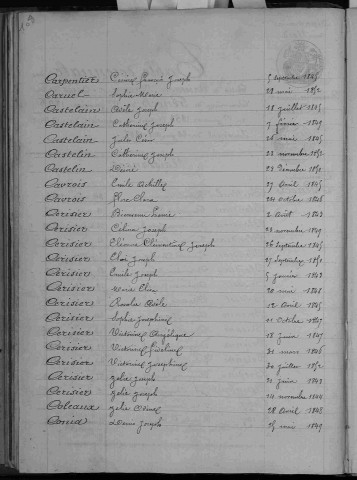 Carpentier Joseph 5 Septembre 1845
Caruel Sophie Marie 29 mai 1852
Castelain Adèle Joseph 18 juillet 1845
Castelain Catherine Joseph 7 février 1849
Castelain Julie 26 mai
Castelin Catherine Joseph 22 novembre 1852
Castelin Désiré 23 Décembre 1851
Cavrois Emile Achille 27 Avril 1845
Cavrois Flore Clara 24 Octobre 1848
Cerisier Bienvenu 2 Août 1843
Cerisier Célina Joseph 23 novembre 1849
Cerisier Clémentine Joseph 26 Septembre 1845
Cerisier Eloi Joseph 27 Septembre 1851
Cerisier Emile Joseph 5 janvier 1843
Cerisier 20 mai 1848
Cerisier Rosalie Adèle 12 Août 1845
Cerisier Sophie Joséphine 11 Octobre 1847
Cerisier Victorine Angélique 18 juin 1847
Cerisier Victorine 31 mars 1846
Cerisier Victorine Joséphine 30 juillet 1852
Cerisier Zélie Joseph 21 juin 1843
Cerisier Zélie Joseph 14 novembre 1844
Coleaux Zélie 28 Avril 1845
Denis Joseph 25 mai 1849